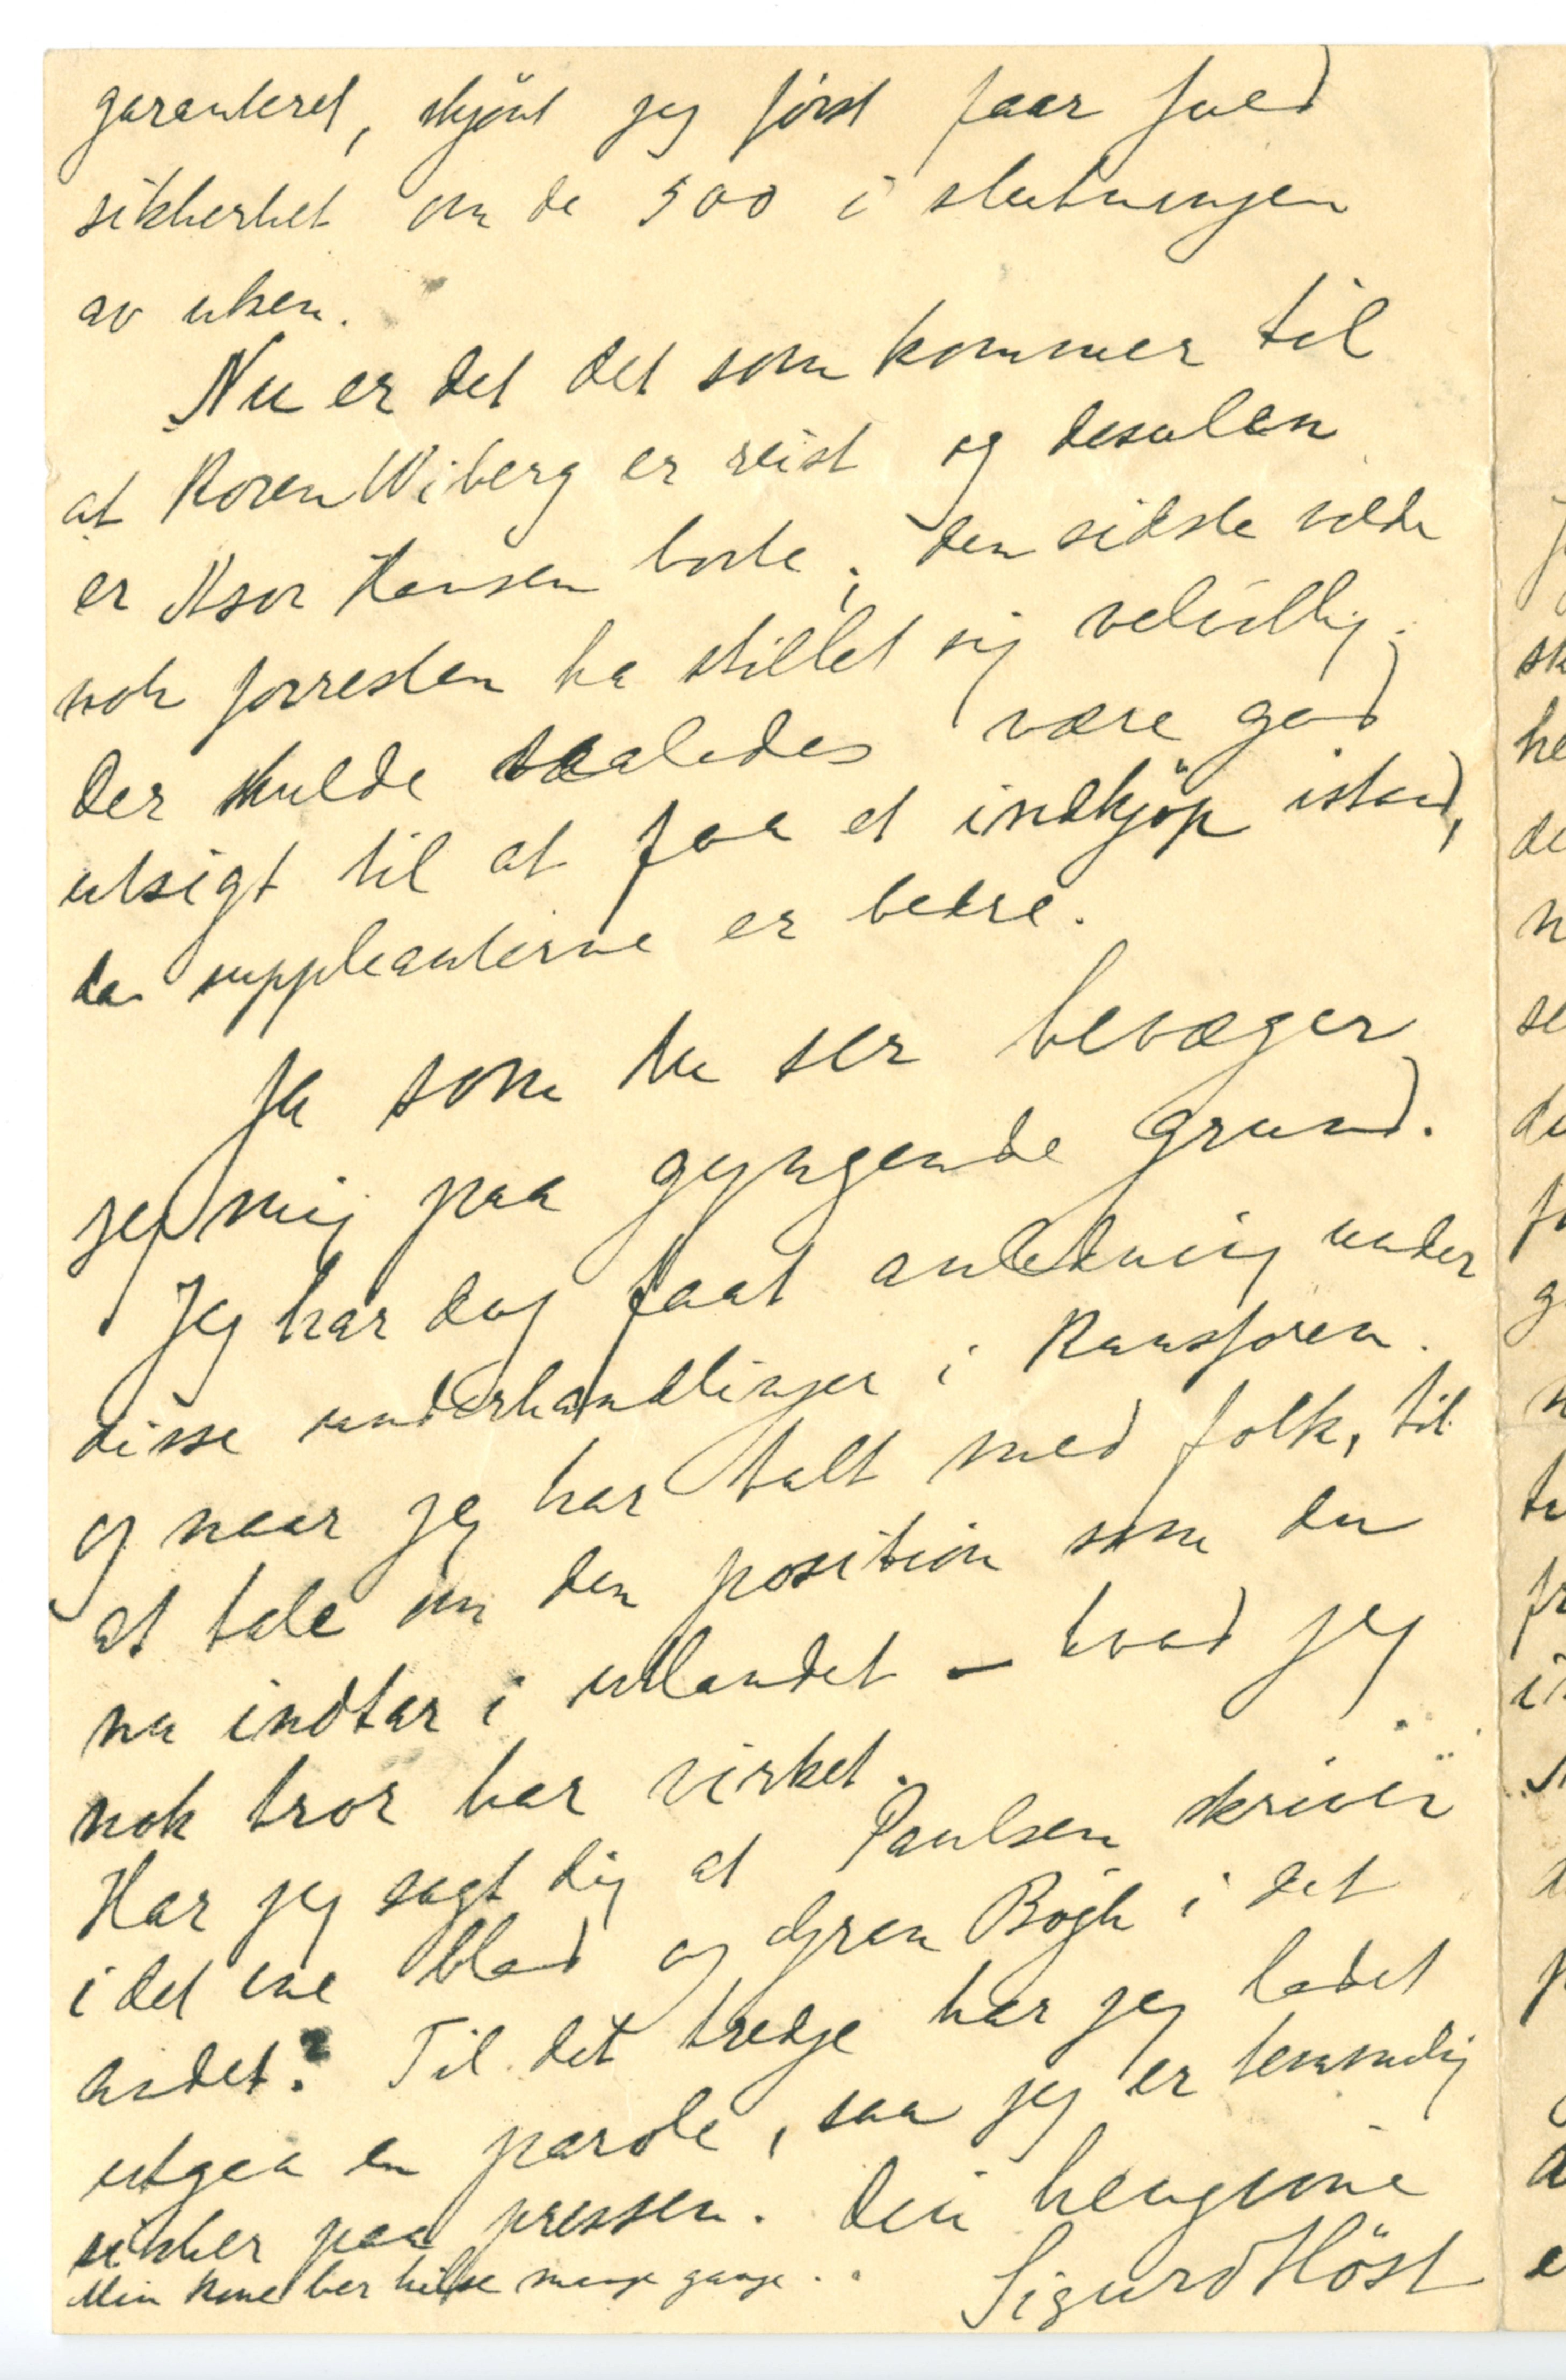 garanteret, skjønt jeg først faar fuld
sikkerhet om de 500 i slutningen
av uken.
Nu er det det som kommer til
at Koren Wiberg er reist og desuten
er Asor Hansen borte; den sidste vilde
nok forresten ha stillet sig velvillig.
Der skulde saaledes være god
utsigt til at faa et indkjöp istand,
da suppleanterne er bedre.
Ja som du ser bevæger
jeg mig paa gyngende grund.
Jeg har dog faat anledning under
disse underhandlinger i Kunstforen.
og naar jeg har talt med folk, til
at tale om den position som du
nu indtar i utlandet – hvad jeg
nok tror har virket.
Har jeg sagt dig at Paulsen skriver
i det ene blad og Gran Bøgh i det
andet? Til det tredje har jeg ladet
utgaa en parole, saa jeg er temmelig
sikker paa pressen. Din hengivne
Min kone ber hilse mange gange.
Sigurd Höst